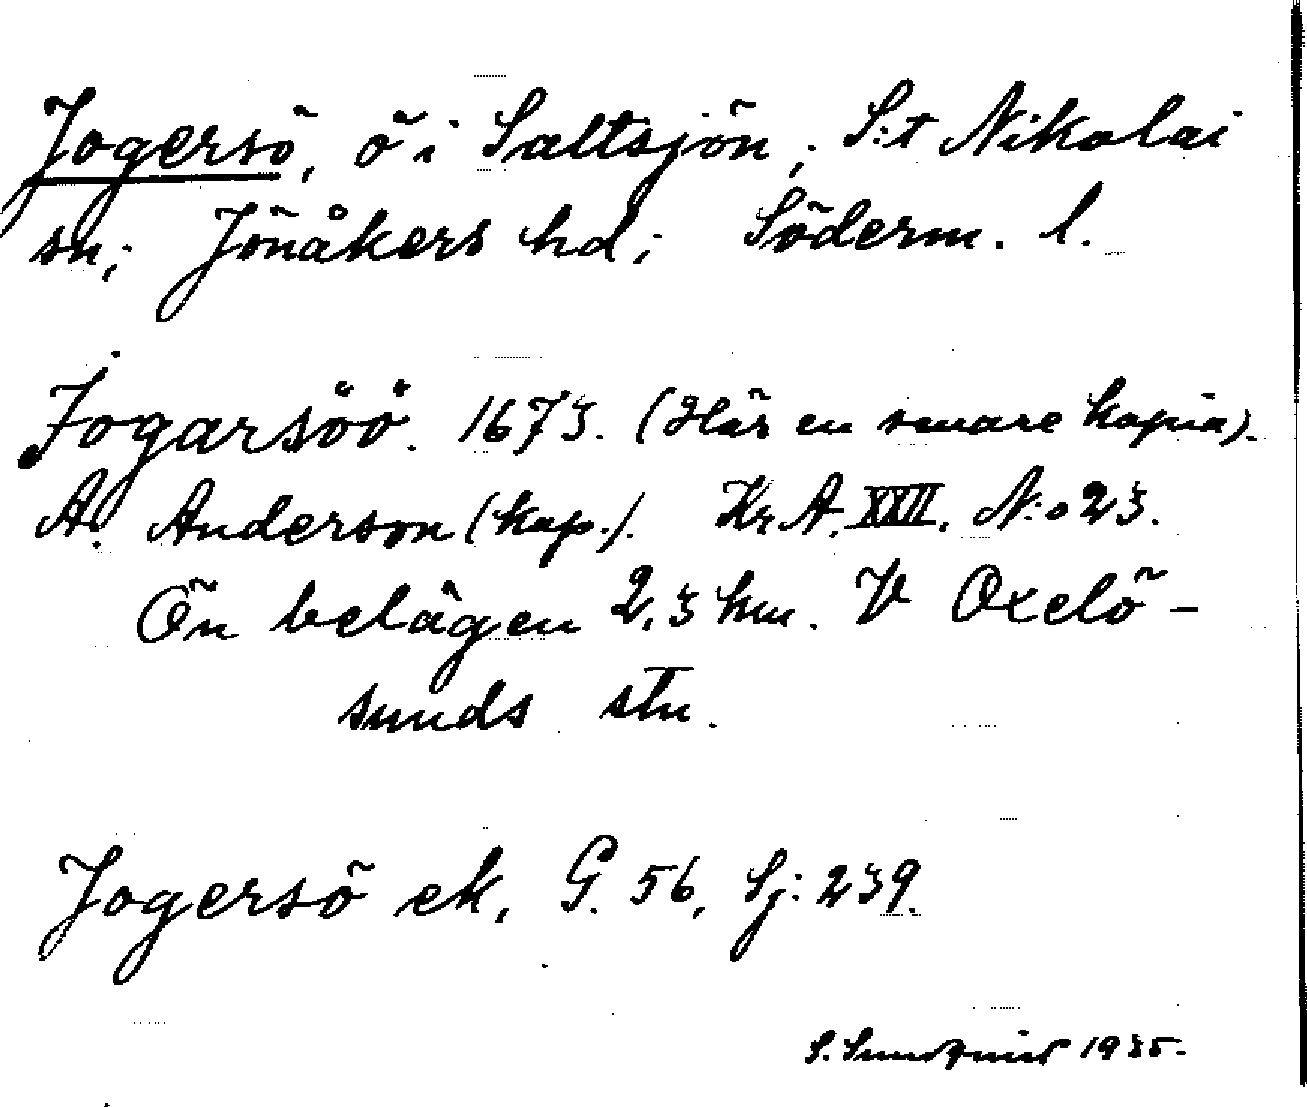 Jogersö, ö i Saltsjön; S:t Nikolai
sn; Jönåkers hd; Söderm. l.
Jogarsöö. 1673. (Här en senare kopia).
A. Anderson (kap.). Kr. A. XXII. N:o 23.
Ön belägen 2,3 km. V Oxelö-
sunds stn.
Jogersö ek, G. 56, Sj: 239.
S. Sundqvist 1935.